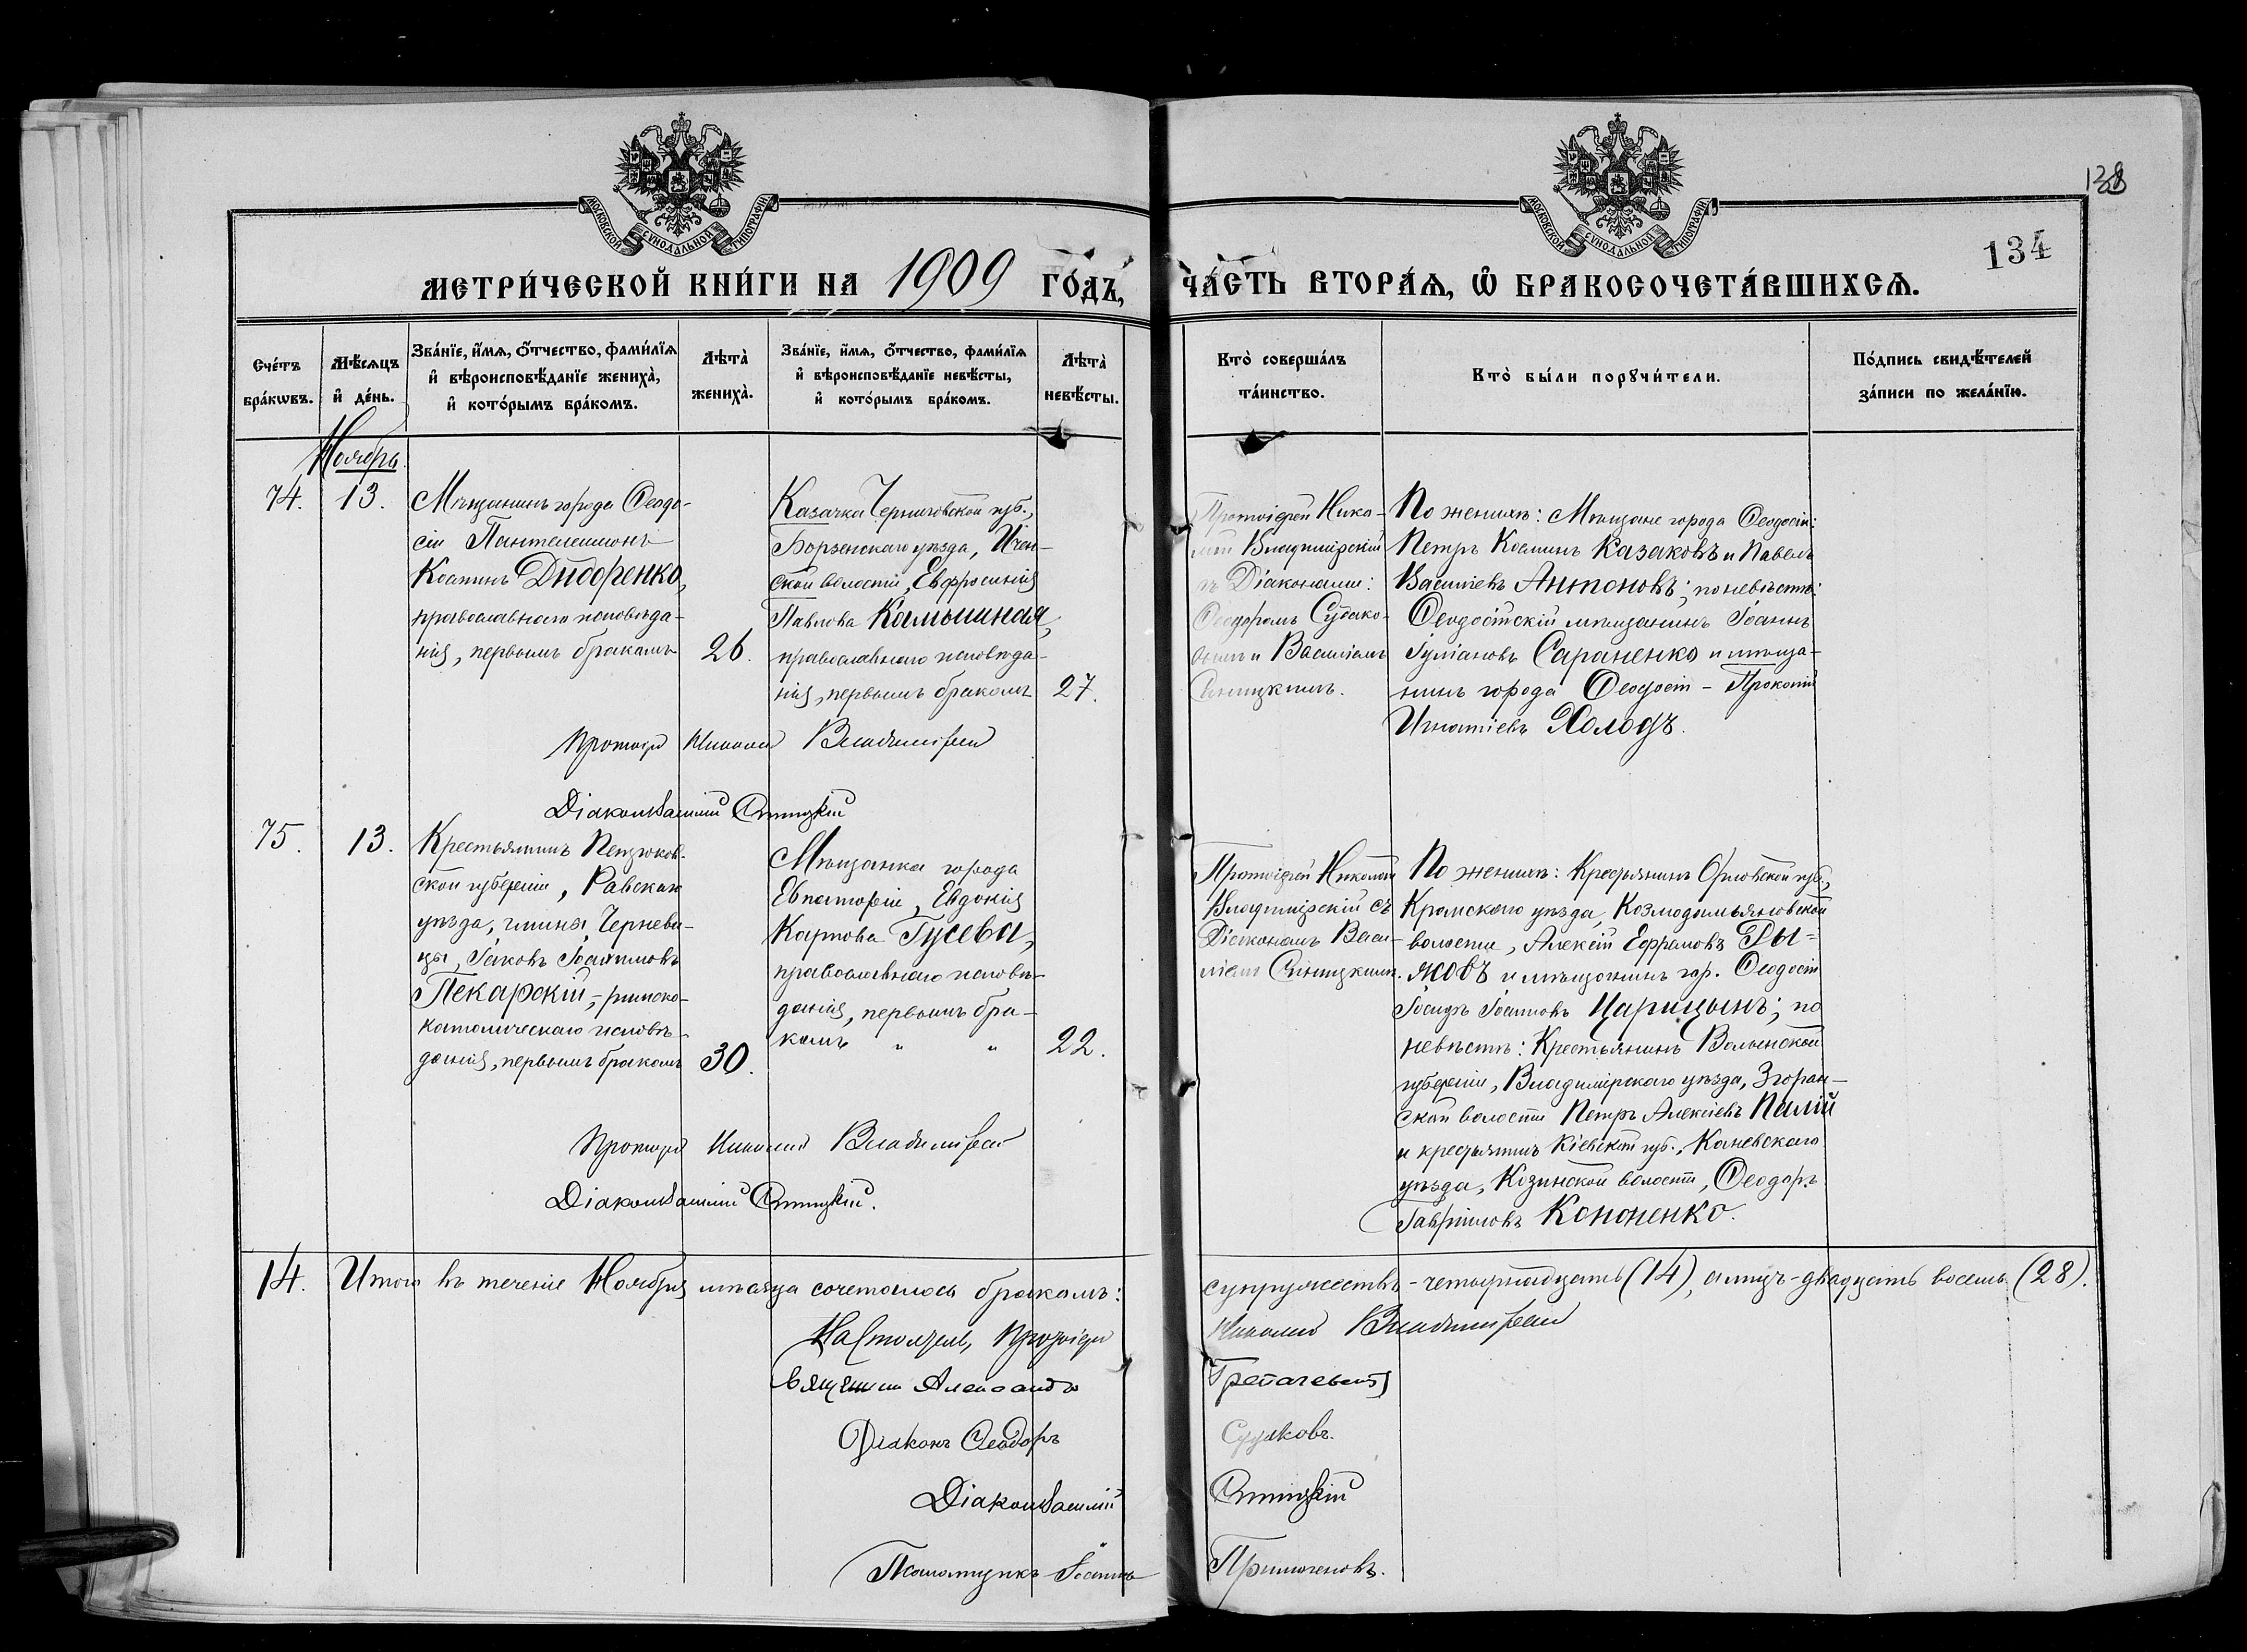 МОСКОВСКОЙ СѴНОДАЛЬНОЙ ТИПОГРАФІИ
МОСКОВСКОЙ СѴНОДАЛЬНОЙ ТИПОГРАФІИ
134
МЕТРИ́ЧЕСКОЙ КНИ́ГИ НА 1909 ГО́ДЪ,
ЧА́СТЬ ВТОРА́Ѧ, Ѿ БРАКОСОЧЕТА́ВШИХСѦ.
Сче́тъ бра́кѡвъ.
Мѣ́сѧцъ и҆ де́нь.
Зва́нїе, и҆́мѧ, ѻ҆́тчество, фами́лїѧ
и҆ вѣроисповѣ́данїе жениха̀,
и҆ кото́рымъ бра́комъ.
Лѣта̀ жениха̀.
Зва́нїе, и҆́мѧ, ѻ҆́тчество, фами́лїѧ
и҆ вѣроисповѣ́данїе невѣ́сты,
и҆ кото́рымъ бра́комъ.
Лѣта̀ невѣ́сты.
Кто̀ соверша́лъ та́инство.
Кто̀ бы́ли порꙋчи́тели.
По́дпись свидѣ́телей за́писи по жела́нїю.
Ноябрь.
74.
13.
Мѣщанинъ города Ѳеодо-
сіи Пантелеимонъ
Косминъ Дидоренко,
православнаго исповѣда-
нія, первымъ бракомъ
26.
Казачка Черниговской губ.,
Борзенскаго уѣзда, Ичен-
ской волости, Евфросинія
Павлова Камышная,
православнаго исповѣда-
нія, первымъ бракомъ
27.
Протоіерей Нико-
лай Владимірскій
съ Діаконами:
Ѳеодоромъ Судако-
вымъ и Василіемъ
Синицкимъ.
По женихѣ: Мѣщане города Ѳеодосіи:
Петръ Косминъ Казаковъ и Павелъ
Василіевъ Антоновъ; по невѣстѣ:
Ѳеодосійскій мѣщанинъ Іоаннъ
Іуліановъ Сараненко и мѣща-
нинъ города Ѳеодосіи - Прокопій
Игнатіевъ Холодъ.
Протоіерей Николай Владимірскій
Діаконъ Василій Синицкій
75.
13.
Крестьянинъ
ской губерніи, Равскаго
уѣзда, гмины Черневи-
цы, Іаковъ
Пекарскій, - римско-
католическаго исповѣ-
данія, первымъ бракомъ
30.
Мѣщанка города
Евпаторіи, Евдокія
Карпова Гусева,
православнаго исповѣ-
данія, первымъ бра-
комъ " "
22.
Протоіерей Николай
Владимірскій съ
Діакономъ Васи-
ліемъ Синицкимъ.
По женихѣ: Крестьянинъ Орловской губ.,
Кромскаго уѣзда, Козмодамьяновской
волости, Алексій Ефремовъ Ры-
жовъ и мѣщанинъ гор. Ѳеодосіи
Іосифъ Іоанновъ Царицынъ; по
невѣстѣ: Крестьянинъ Волынской
губерніи, Владимірскаго уѣзда, Згоран-
ской волости Петръ Алексіевъ Палій
и крестьянинъ Кіевской губ., Каневскаго
уѣзда, Козинской волости, Ѳеодоръ
Гавріиловъ Кононенко.
Протоіерей Николай Владимірскій
Діаконъ Василій Синицкій.
14. Итого въ теченіе Ноября мѣсяца сочеталось бракомъ:
супружествъ - четырнадцать (14), а лицъ - двадцать восемь (28).
Настоятель, Протоіерей Николай Владимірскій
Священникъ Александръ
Діаконъ Ѳеодоръ Судаковъ.
Діаконъ Василій Синицкій
Псаломщикъ Іоаннъ